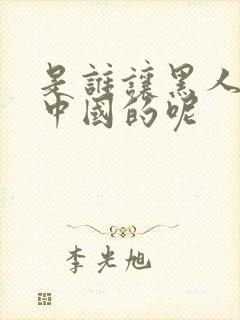 是誰讓黑人
中國的呢
李光旭